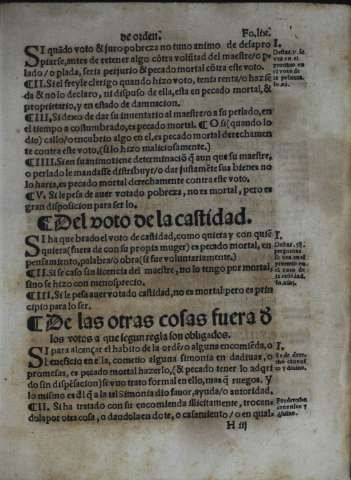 de orden. Fo.lix.
SI quãdo voto & juro pobreza no tuuo animo de desapro
piarse, antes de retener algo cõtra volũtad del maestre/o p̱
lado/o plada, seria perjurio & pecado mortal cõtra este voto.
¶II. Si el freyle clerigo quando hizo voto, tenia renta/o haziẽ
da & no lo declaro, ni dispuso de ella, esta en pecado mortal, &
proprietario, y en estado de damnacion.
¶III. Si dexo de dar su inuentario al maestre/o a su perlado, en
el tiempo acostumbrado, es pecado mortal. ¶ O si (quando lo
dio) callo/o encubrio algo en el, es pecado mortal derechamen
te contra este voto, (si lo hizo maliciosamente.)
¶IIII. Si en su animo tiene determinaciõ q̃ aun que su maestre,
o perlado le mandasse distribuyr/o dar justamẽte sus bienes no
lo haria, es pecado mortal derechamente contra este voto.
¶V. Si le pesa de auer votado pobreza, no es mortal, pero es
gran disposicion para ser lo.
¶Del voto de la castidad.
SI ha quebrado el voto de castidad, como quiera y con quiẽ
quiera (fuera de con su propia muger) es pecado mortal, en
pensamiento, palabra/o obra (si fue voluntariamente.)
¶II. Si se caso sin licencia del maestre, no lo tengo por mortal,
sino se hizo con menosprecio.
¶III. Si le pesa auer votado castidad, no es mortal: pero es prin
cipio para lo ser.
¶De las otras cosas fuera d̃
los votos a que segun regla son obligados.
SI para alcançar el habito de la ordẽ/o alguna encomiẽda, o
beneficio en ella, cometio alguna simonia en dadiuas, o
promesas, es pecado mortal hazerlo, (& pecado tener lo adqrị
do sin dispẽsacion) si es no trato formal en ello, mas q̃ ruegos. y
lo mismo es dl q̃ a la tal Simonia dio fauor, ayuda/o autoridad.
¶II. Si ha tratado con su encomienda illicitamente, trocan
dola por otra cosa, o dandola en dote, o casamiento/o en qual
H iij
I.
I.
I.